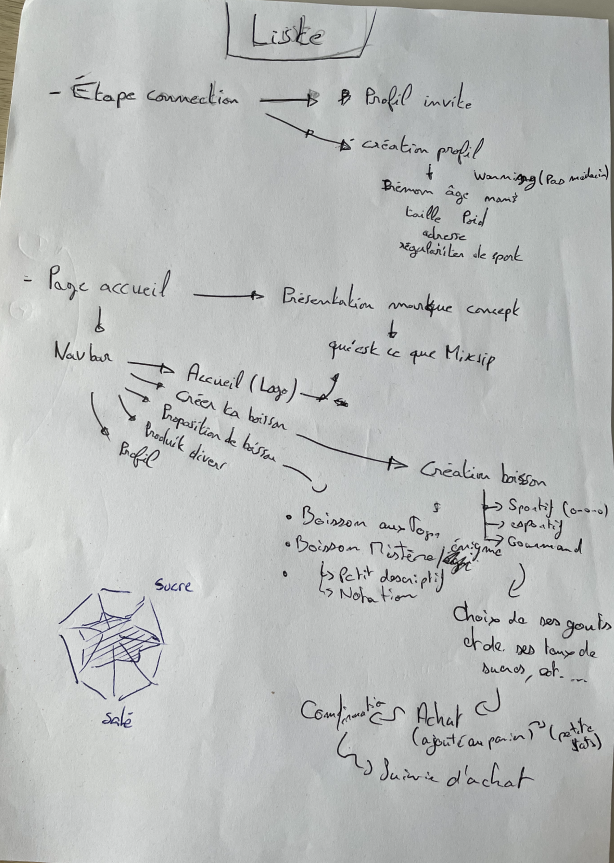 Liste
- Étape connection
Profil invite
création profil
Warning (Pas médecin)
Prénom âge
taille Poid
adresse
régulariter de sport
- Page accueil
Présentation marque concept
qu'est ce que Mixsip
Navbar
Accueil (Logo)
Créer ta boisson
Proposition de boisson
Produit divers
Profil
Création boisson
Sportif (o-o-o)
esportif
Gourmand
• Boisson aux
• Boisson Mistère/
énigme
Petit descriptif
Notation
•
Choix de ses gouts
et de ses taux de
sucres, ect. ...
Confirmation
Achat
(ajouté au panier)
(petite
Suivie d'achat
Sucre
Salé